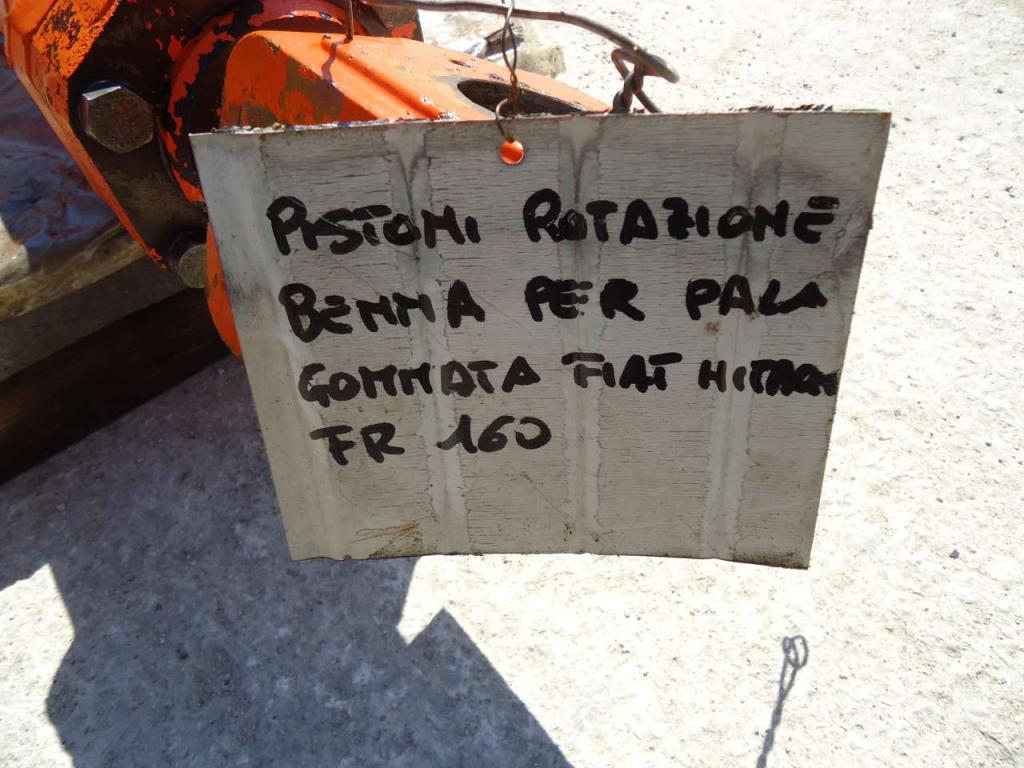 PISTONI ROTAZIONE
BENNA PER PALA
GOMMATA FIAT HITACHI
FR 160